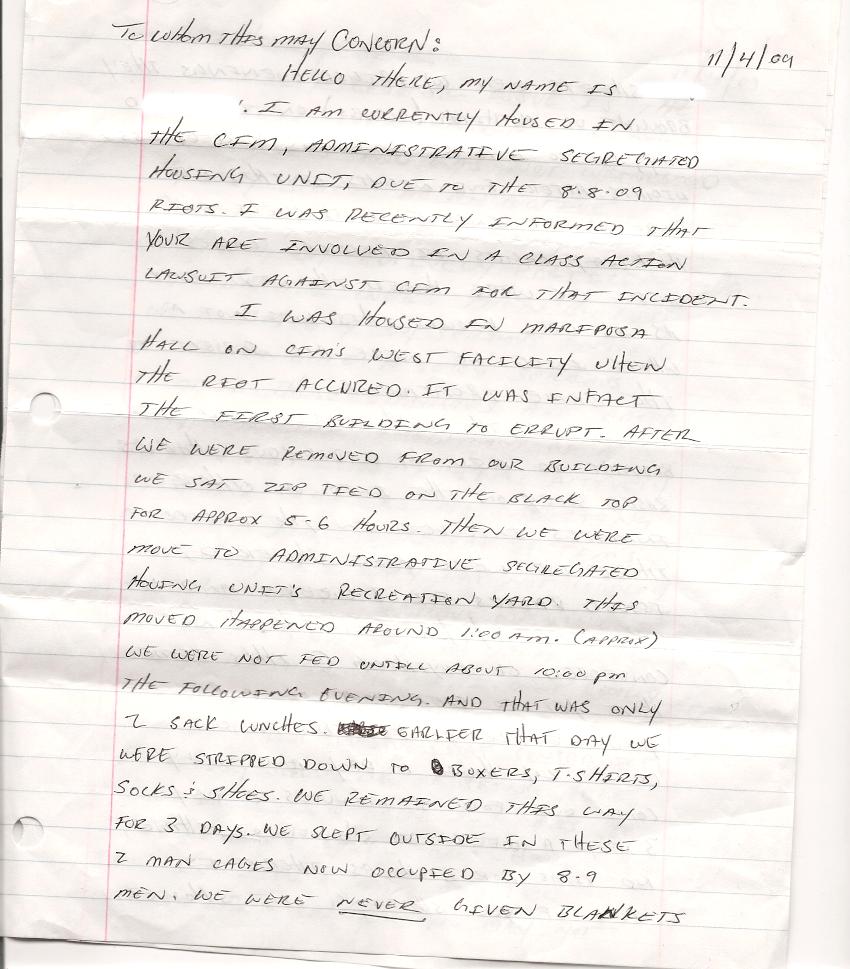 To Whom This May Concorn:
11/4/09
Hello there, my name is
. I am currently housed in
the CIM, Administrative Segregated
Housing Unit, due to the 8.8.09
riots. I was recently informed that
your are involved in a class action
lawsuit against CIM for that incident.
I was housed in Mariposa
Hall on CIM's West Facility when
the riot accured. It was infact
the first building to errupt. After
we were removed from our building
we sat zip tied on the black top
for approx 5-6 hours. Then we were
move to Administrative Segregated
Housing Unit's recreation yard. This
moved happened around 1:00 am. (approx)
We were not fed untill about 10:00 pm
the following evening. And that was only
2 sack lunches. Earlier that day we
were stripped down to boxers, T-shirts,
socks & shoes. We remained this way
for 3 days. We slept outside in these
2 man cages now occupied by 8-9
men. We were never given blankets